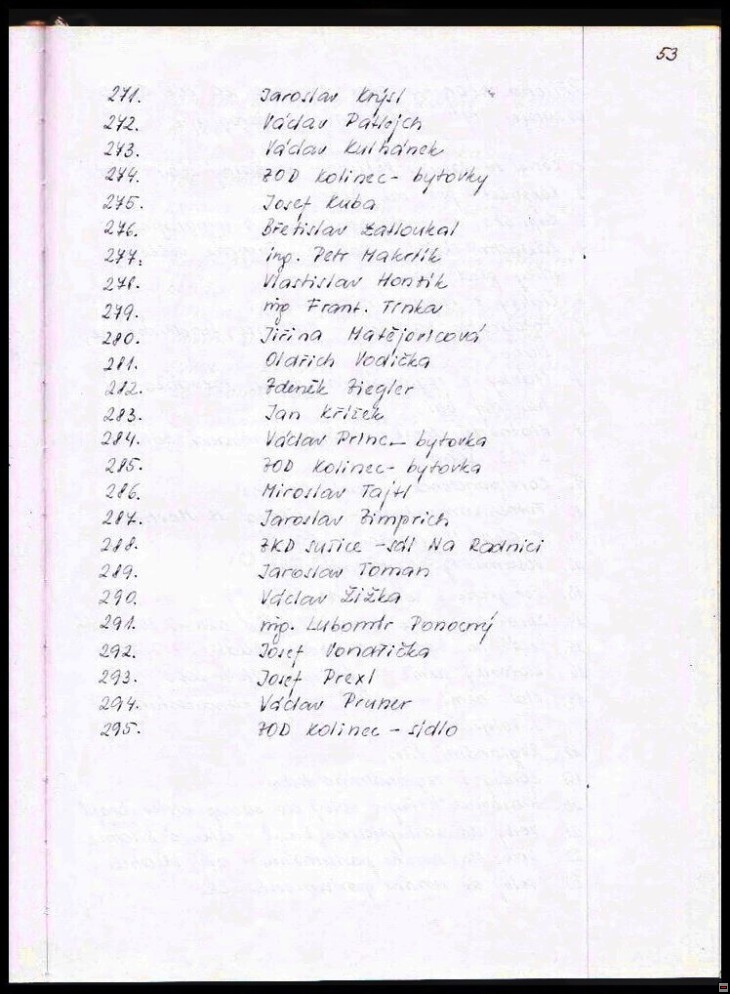 53
271. Jaroslav Krýsl
272. Václav Patlejch
273. Václav Kulhánek
274. ZOD Kolinec - bytovky
275. Josef Kuba
276. Břetislav Zatloukal
277. ing. Petr Makrlík
278. Vlastislav Hontík
279. ing Frant. Trnka
280. Jiřina Matějovicová
281. Oldřich Vodička
282. Zdeněk Ziegler
283. Jan Křížek
284. Václav Princ - bytovka
285. ZOD Kolinec - bytovka
286. Miroslav Tajtl
287. Jaroslav Zimprich
288. ZKD Sušice - sdl Na Radnici
289. Jaroslav Toman
290. Václav Žižka
291. ing. Lubomír Ponocný
292. Josef Vondřička
293. Josef Prexl
294. Václav Pruner
295. ZOD Kolinec - sídlo